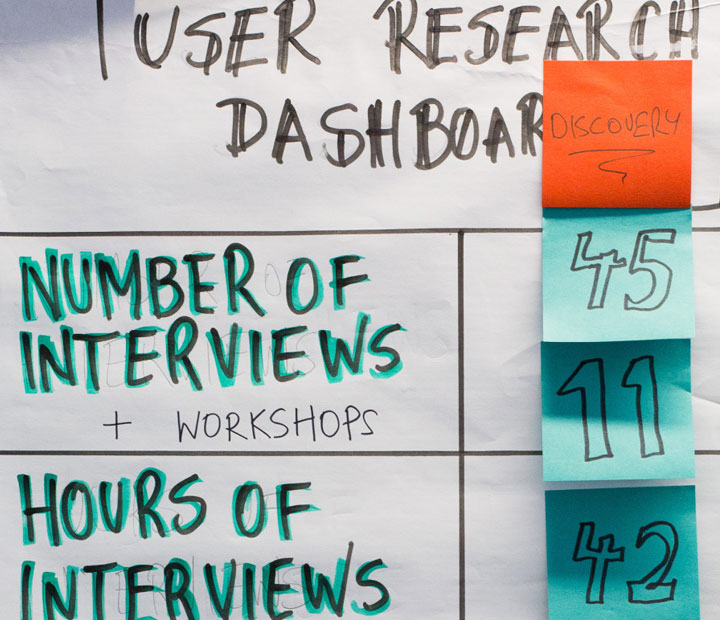 USER RESEARCH
DASHBOAR
DISCOVERY
NUMBER OF
INTERVIEWS
45
+ WORKSHOPS
11
HOURS OF
INTERVIEWS
42